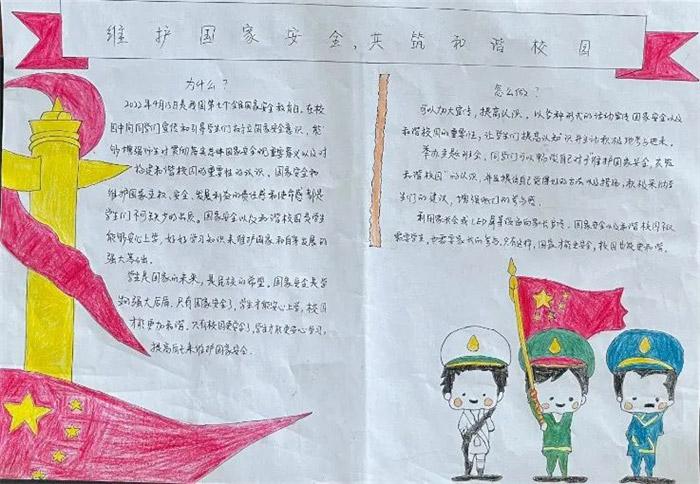 维护国家安全,共筑和谐校园
为什么?
2022年4月15日是我国第七个全民国家安全教育日,在校
园中向同学们宣传和引导学生们树立国家安全意识,能
够增强学生对贯彻落实总体国家安全观重要意义以及对
构建和谐校园的重要性的认识。国家安全和
维护国家主权、安全、发展利益的责任感和使命感都是
学生们不可缺少的品质。国家安全以及和谐校园是学生
能够安心上学,好好学习知识来维护国家和自身发展的
强大
学生是国家的未来,是民族的希望。国家安全是学
生的强大后盾。只有国家安全了,学生才能安心上学,校园
才能更加和谐。只有校园安全了,学生才能安心学习,
提高自己来维护国家安全.
怎么做?
可以加大宣传,提高认识。以各种形式的活动宣传国家安全以及
和谐校园的重要性,让学生们提高认知意识并主动积极地参与进来。
举办主题班会,同学们可以畅谈自己对于维护国家安全,共筑
和谐校园"的认识,并且提出自己觉得好的方法以及措施,积极采纳学
生们的建议,增强他们的参与感。
利用家长会或LED屏等设备向家长宣传。国家安全以及和谐校园不仅
需要学生,也需要家长的参与。只有这样,国家才能更安全,校园也能更和谐。